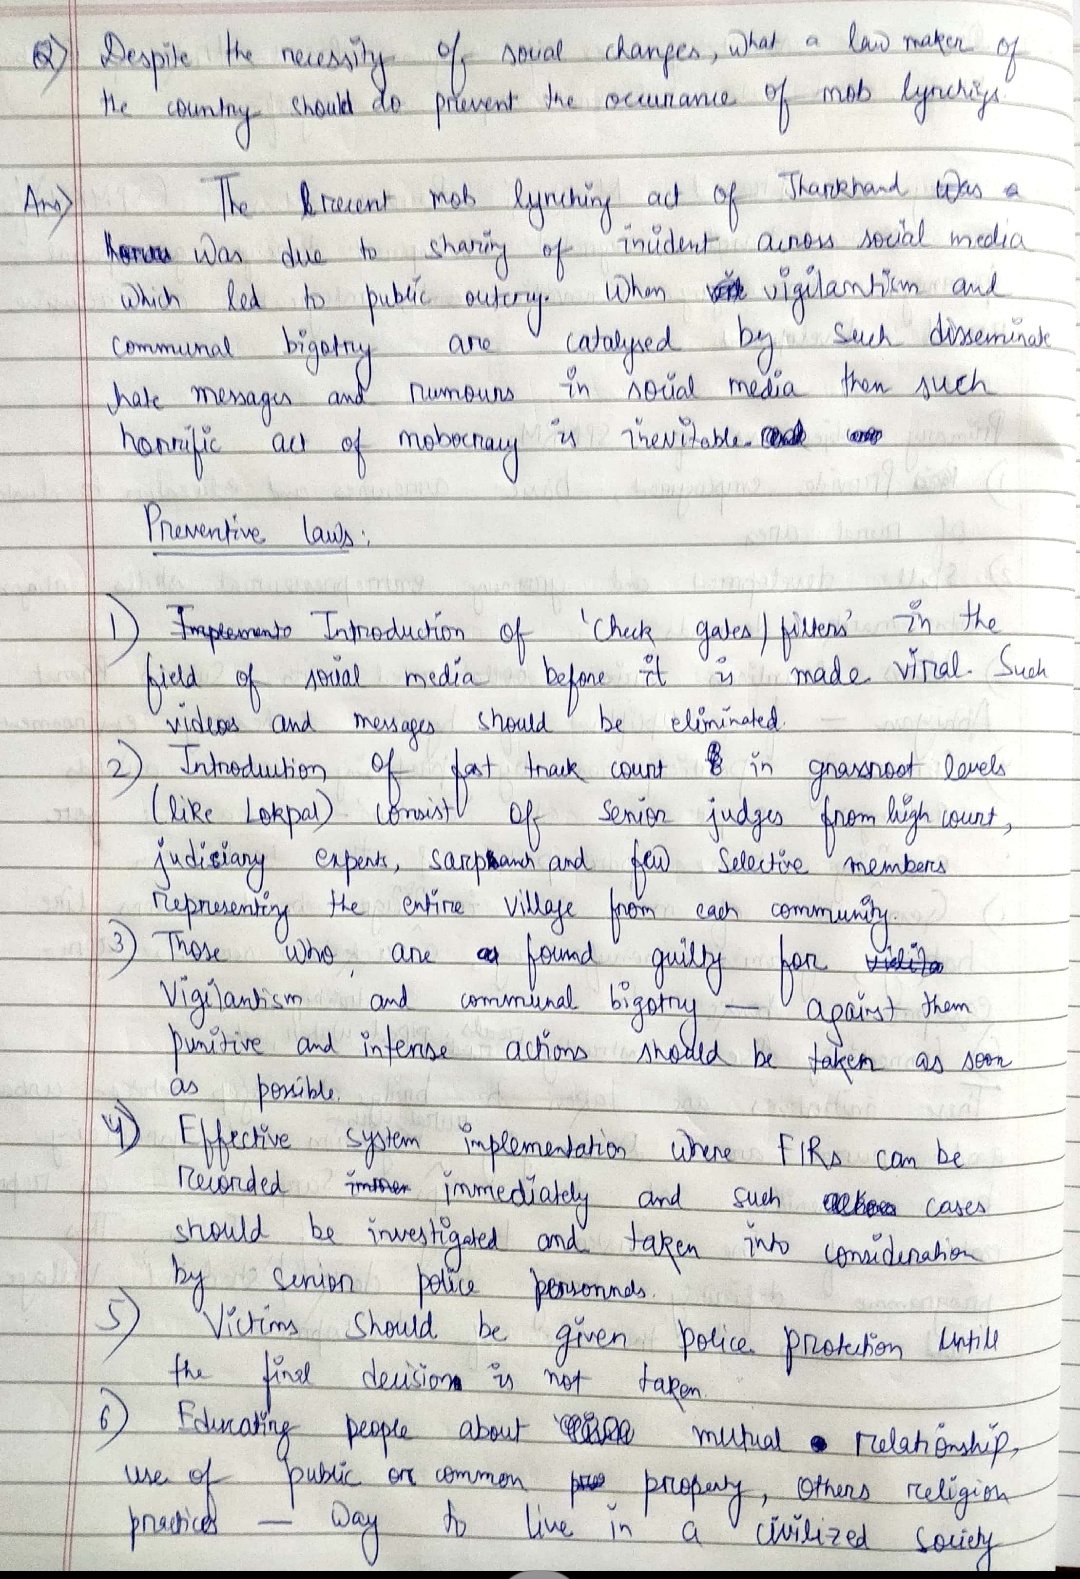 Q) Despite the necessity of social changes, what a law maker of
the country should do prevent the occurrance of mob lynchigs.
Ans) The recent mob lynching act of Jharkhand was a
was due to sharing of incident across social media
which led to public outcry. When vigilantism and
communal bigotry are catalysed by such disseminate
hate messages and rumours in social media then such
horrific act of mobocracy is inevitable.
Preventive laws:
1) Implemento Introduction of 'Check gates/filters' in the
field of social media before it is made viral. Such
videos and messages should be eliminated.
2) Introduction of fast track court in grassroot levels
(like Lokpal) consist of senior judges from high court,
judiciary experts, sarpanch and few selective members
representing the entire village from each community.
3) Those who are found guilty for
vigilantism and communal bigotry — against them
punitive and intense actions should be taken as soon
as possible.
4) Effective system implementation where FIRs can be
recorded immediately and such cases
should be investigated and taken into consideration
by senior police personnels.
5) Victims should be given police protection untill
the final decision is not taken.
6) Educating people about mutual relationship,
use of public or common property, others religion
practices — way to live in a civilized society